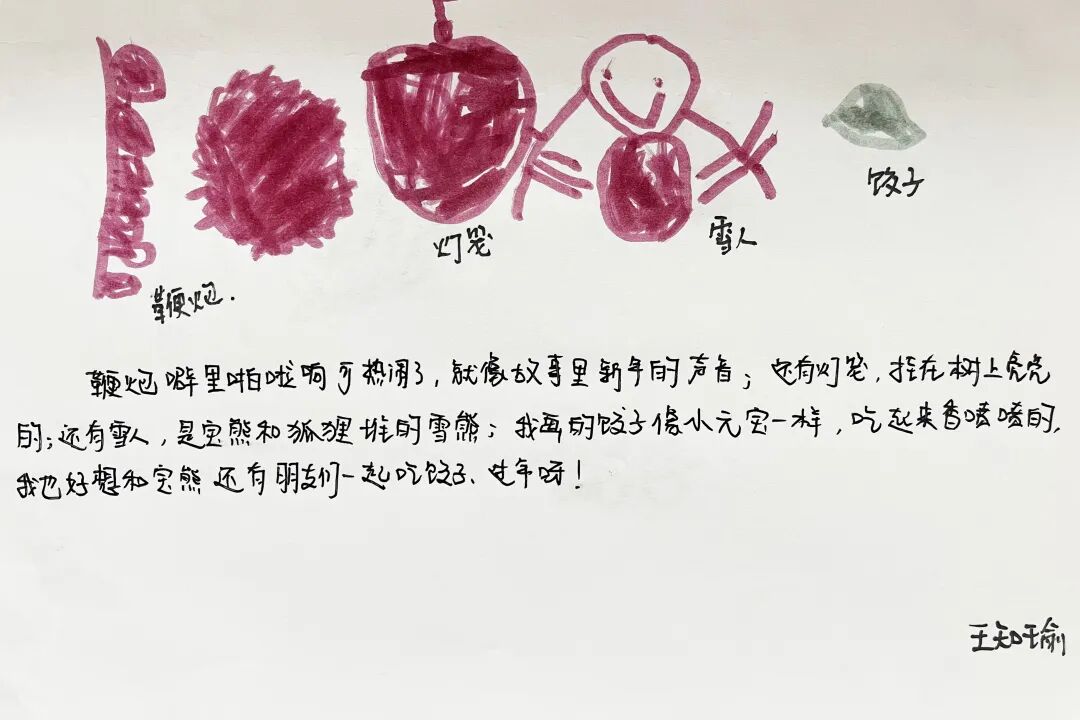 灯笼
雪人
饺子
鞭炮.
鞭炮噼里啪啦响可热闹了,就像故事里新年的声音;还有灯笼,挂在树上亮亮
的;还有雪人,是宝熊和狐狸堆的雪熊;我画的饺子像小元宝一样,吃起来香喷喷的,
我也好想和宝熊还有朋友们一起吃饺子、过年呀!
王知瑜